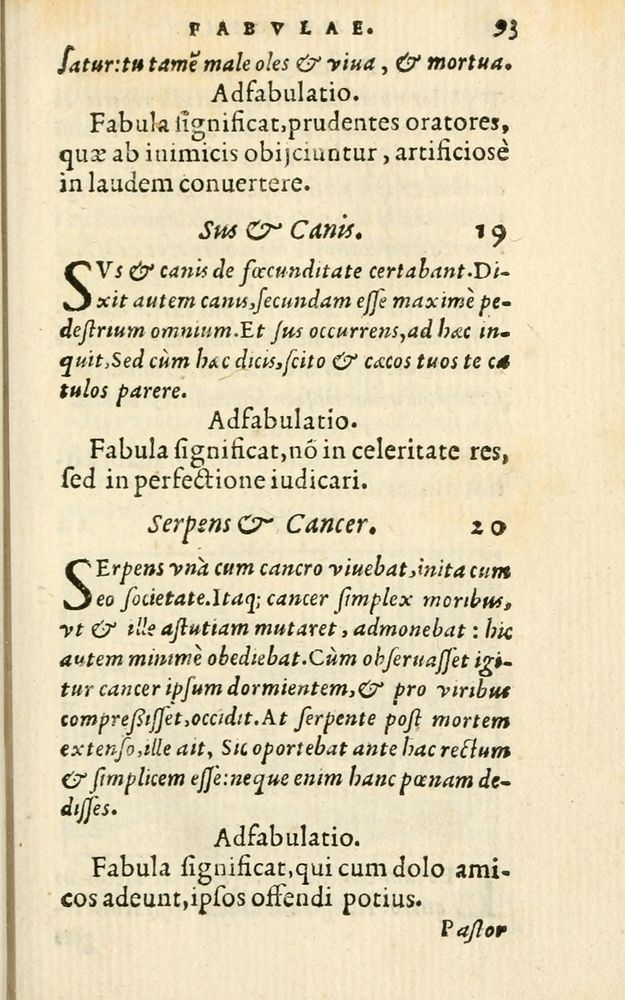 FABVLAE. 93
ſatur:tu tamẽ male oles & viua, & mortua.
Adfabulatio.
Fabula ſignificat,prudentes oratores,
quæ ab inimicis obijciuntur, artificioſè
in laudem conuertere.
Sus & Canis. 19
SVs & canis de fœcunditate certabant.Di-
xit autem canis,ſecundam eſſe maximè pe-
deſtrium omnium.Et ſus occurrens,ad hæc in-
quit,Sed cùm hæc dicis,ſcito & cæcos tuos te ca
tulos parere.
Adfabulatio.
Fabula ſignificat,nō in celeritate res,
ſed in perfectione iudicari.
Serpens & Cancer. 20
SErpens vnà cum cancro viuebat,inita cum
eo ſocietate.Itaq; cancer ſimplex moribus,
vt & ille aſtutiam mutaret, admonebat: hic
autem minimè obediebat.Cùm obſeruaſſet igi-
tur cancer ipſum dormientem,& pro viribus
compreßiſſet,occidit.At ſerpente poſt mortem
extenſo,ille ait, Sic oportebat ante hac rectum
& ſimplicem eſſe:neque enim hanc pœnam de-
diſſes.
Adfabulatio.
Fabula ſignificat,qui cum dolo ami-
cos adeunt,ipſos offendi potius.
Paſtor